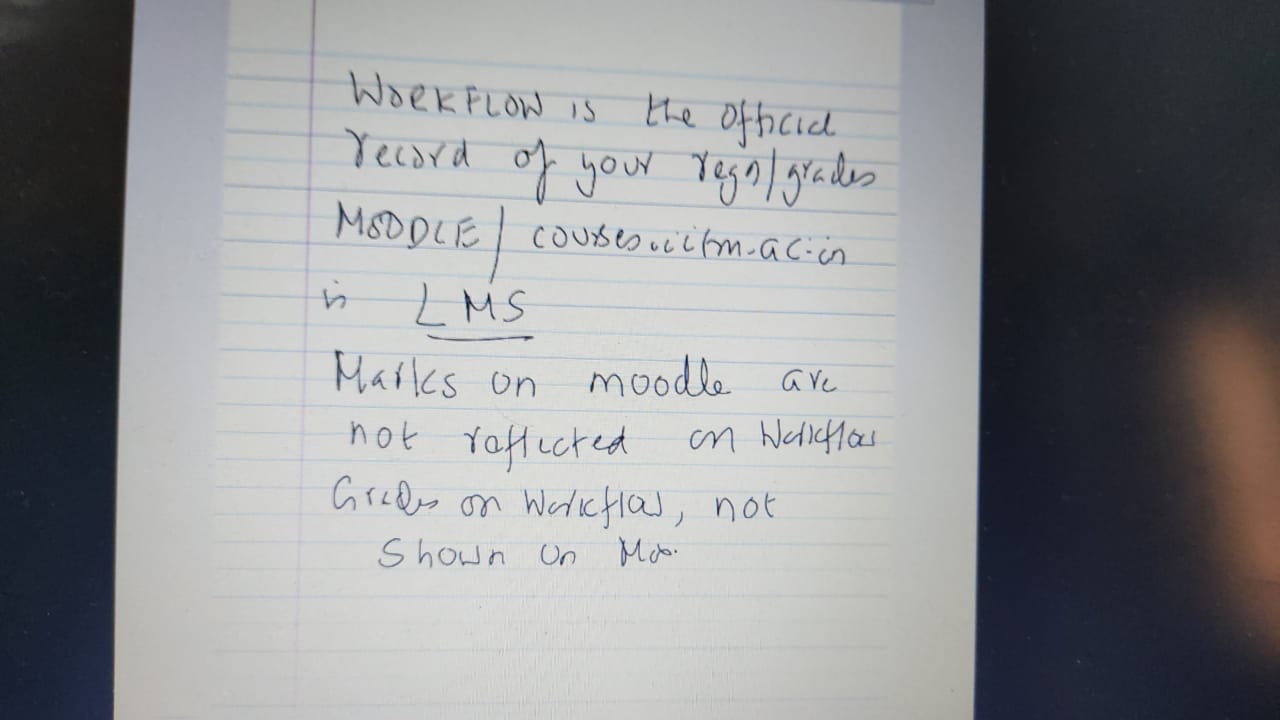 WORKFLOW is the official
record of your regn/grades
MOODLE/ courses.iitm.ac.in
is LMS
Marks on moodle are
not reflected on Workflow
Grades on Workflow, not
Shown on Moo.